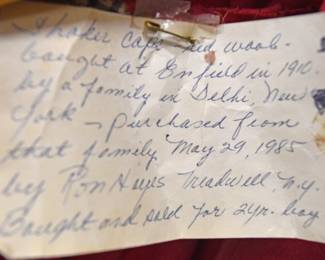 Shaker cape red wool -
bought at Enfield in 1910
by a family in Delhi, New
York - purchased from
that family May 29, 1985
by Ron Treadwell, N.Y.
Bought and sold for 2yr.